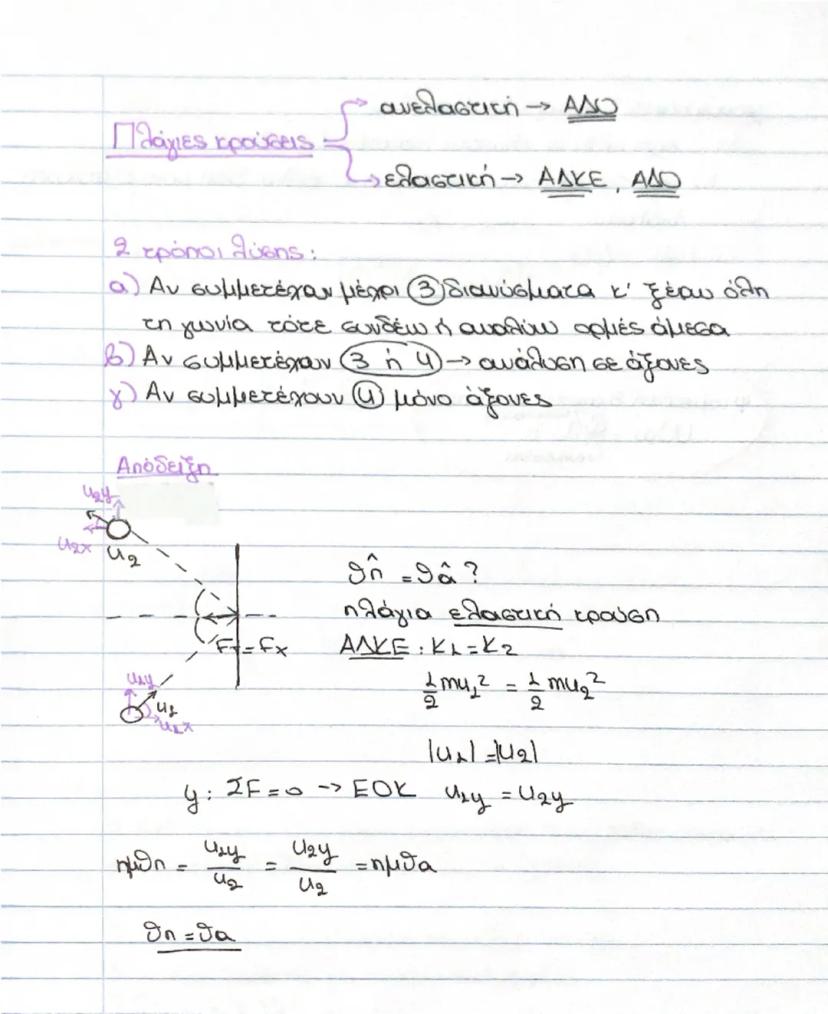 ανελαστική → ΑΔΟ
Πλάγιες κρούσεις
ελαστική → ΑΔΚΕ, ΑΔΟ
2 τρόποι λύσης:
α) Αν συμμετέχουν μέχρι 3 διανύσματα κ' ξέρω όλη
τη γωνία τότε συνδέω ή αναλύω ορμές άμεσα
β) Αν συμμετέχουν 3 ή 4 → ανάλυση σε άξονες
γ) Αν συμμετέχουν 4 μόνο άξονες
Απόδειξη
u2y
u2x u2
θπ̂ = θα̂ ?
πλάγια ελαστική κρούση
F = Fx ΑΔΚΕ : K1 = K2
u1y
u1
u1x
1/2 mu1² = 1/2 mu2²
|u1| = |u2|
y: ΣF = 0 -> ΕΟΚ u1y = u2y
ημθπ = u1y/u2 = u2y/u2 = ημθα
θπ = θα